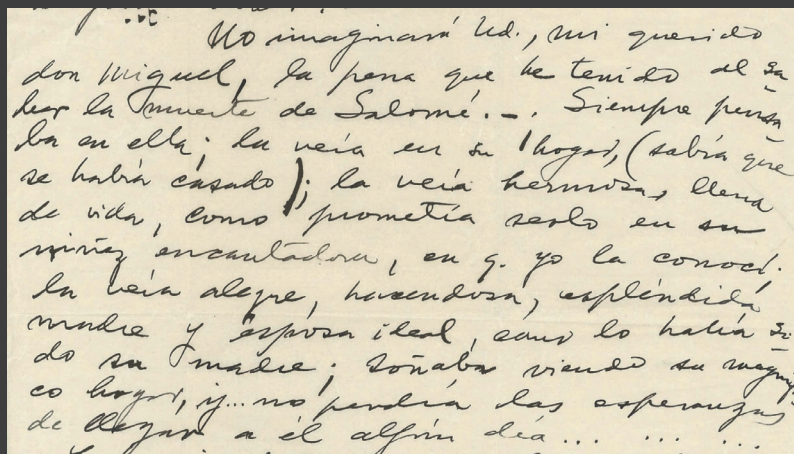 No imaginará Ud., mi querido
don Miguel, la pena que he tenido al sa
ber la muerte de Salomé.-. Siempre pensa
ba en ella; la veía en su hogar, (sabía que
se había casado); la veía hermosa, llena
de vida, como prometía serlo en su
niñez encantadora, en q. yo la conocí.
la veía alegre, hacendosa, espléndida
madre y esposa ideal, como lo había si
do su madre; soñaba viendo su magnífi
co hogar, y... no perdía las esperanzas
de llegar a él algún día... ... ...